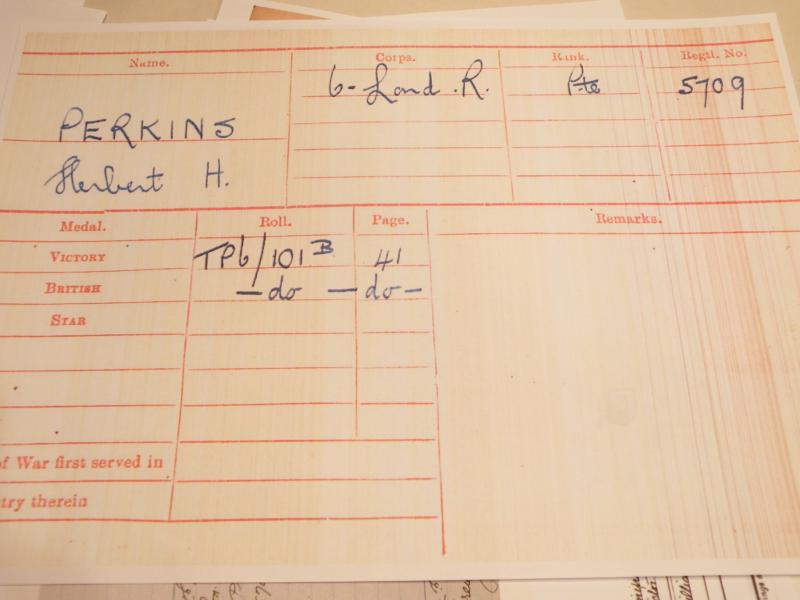 Name. Corps. Rank. Regtl. No.
6- Lond. R. Pte 5709
PERKINS
Herbert H.
Medal. Roll. Page. Remarks.
VICTORY TP6/101 B 41
BRITISH — do — do —
STAR
of War first served in
try therein